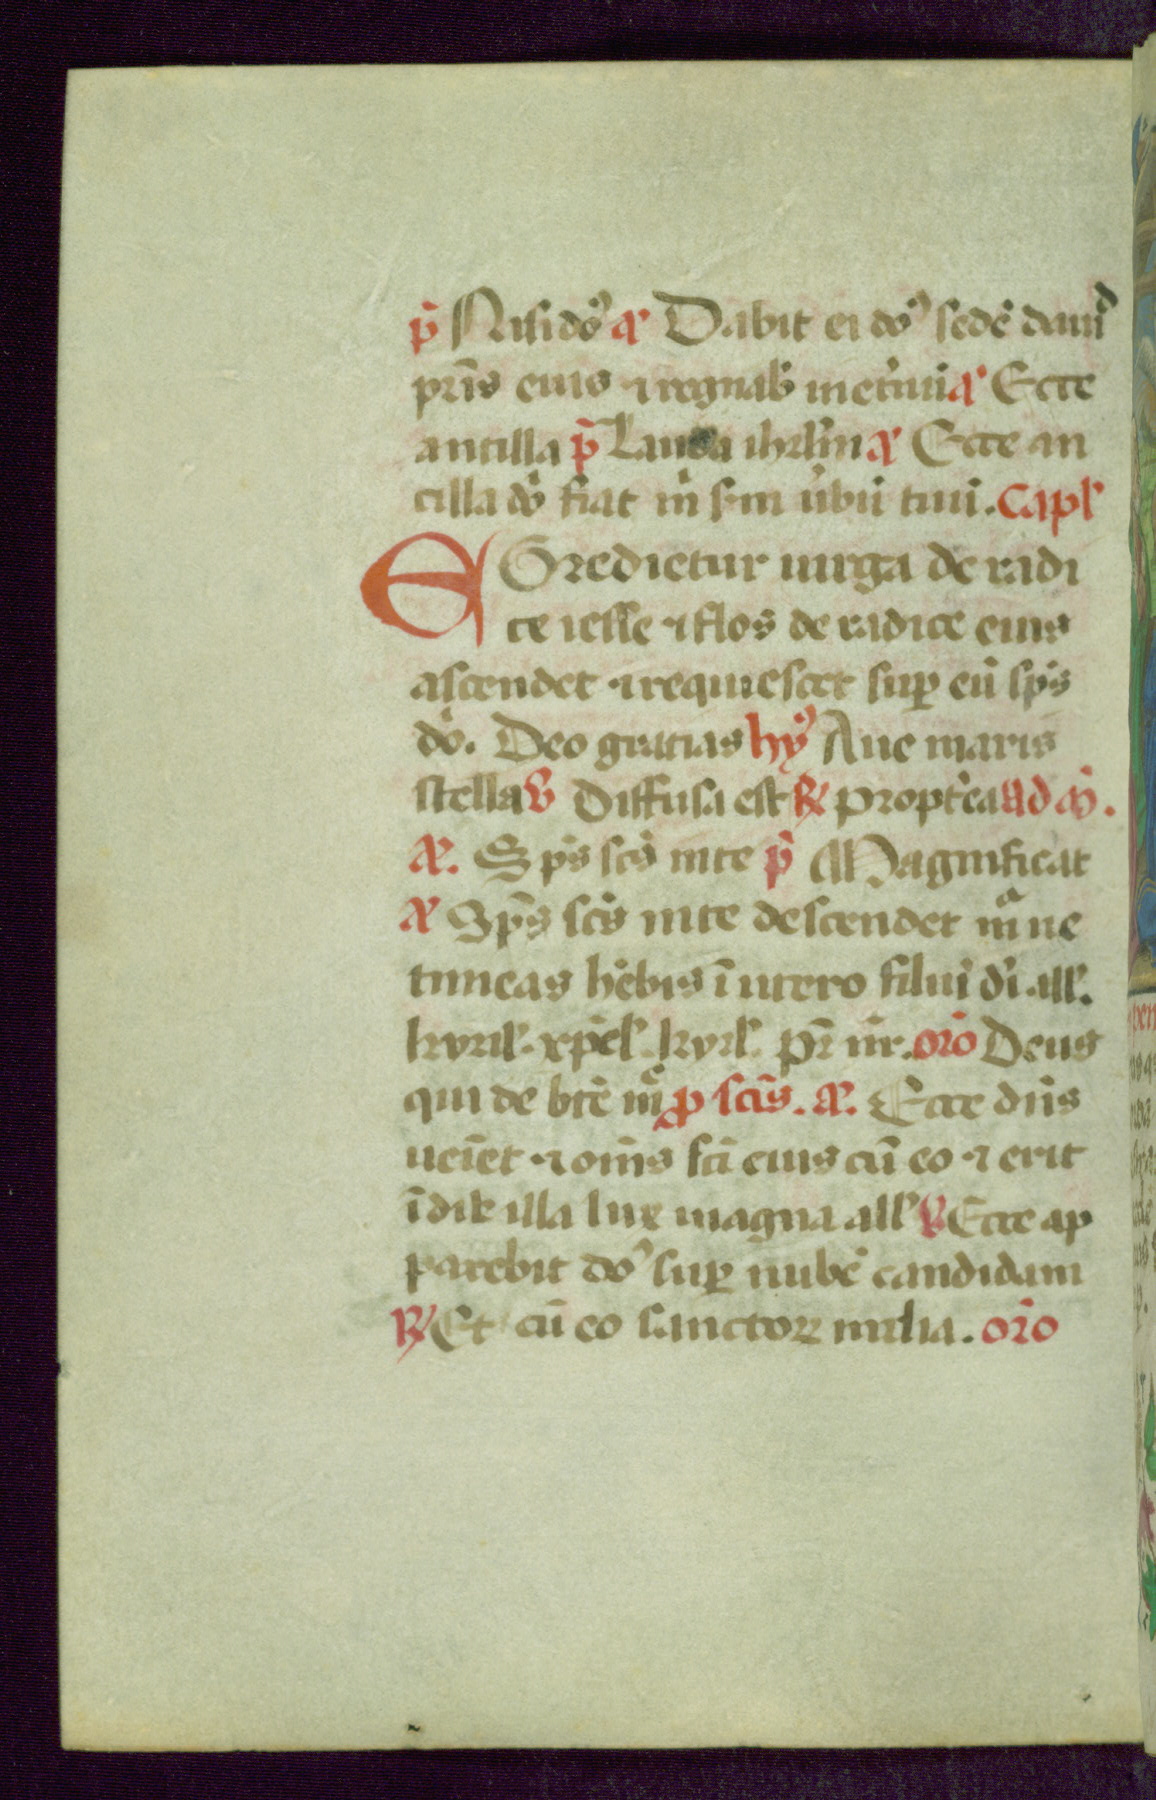 p̄ Nisi dōs a͞ Dabit ei dōs sedē dauid
pr̄is eius ⁊ regnab̄ in etʼnū a͞ Ecce
ancilla p̄ Lauda ihrlʼm a͞ Ecce an
cilla dō fiat m̄ sʼm ūbū tuū. Capl
EGredietur uirga de radi
ce iesse ⁊ flos de radice eius
ascendet ⁊ requiescet suꝑ eū sp̄s
dō. Deo gratias hȳs Aue maris
stella v̄ Diffusa est ℟ proptʼea ad m̄.
a͞. Sp̄s sc̄s in te p̄ Magnificat
a͞ Sp̄s sc̄s in te descendet mᵃ ne
timeas hēbis ī utero filiū dī all.
kyriel. xp̄el. kyrl. pr̄ nr̄. orō Deus
qui de btē mᵉ ꝓ sc̄is. a͞. Ecce dn̄s
ueīet ⁊ om̄s sc̄i eius cū eo ⁊ erit
ī die illa lux magna all ℣ Ecce ap
parebit dōs suꝑ nubē candidam
℟ Et cū eo sanctoꝝ milia. orō